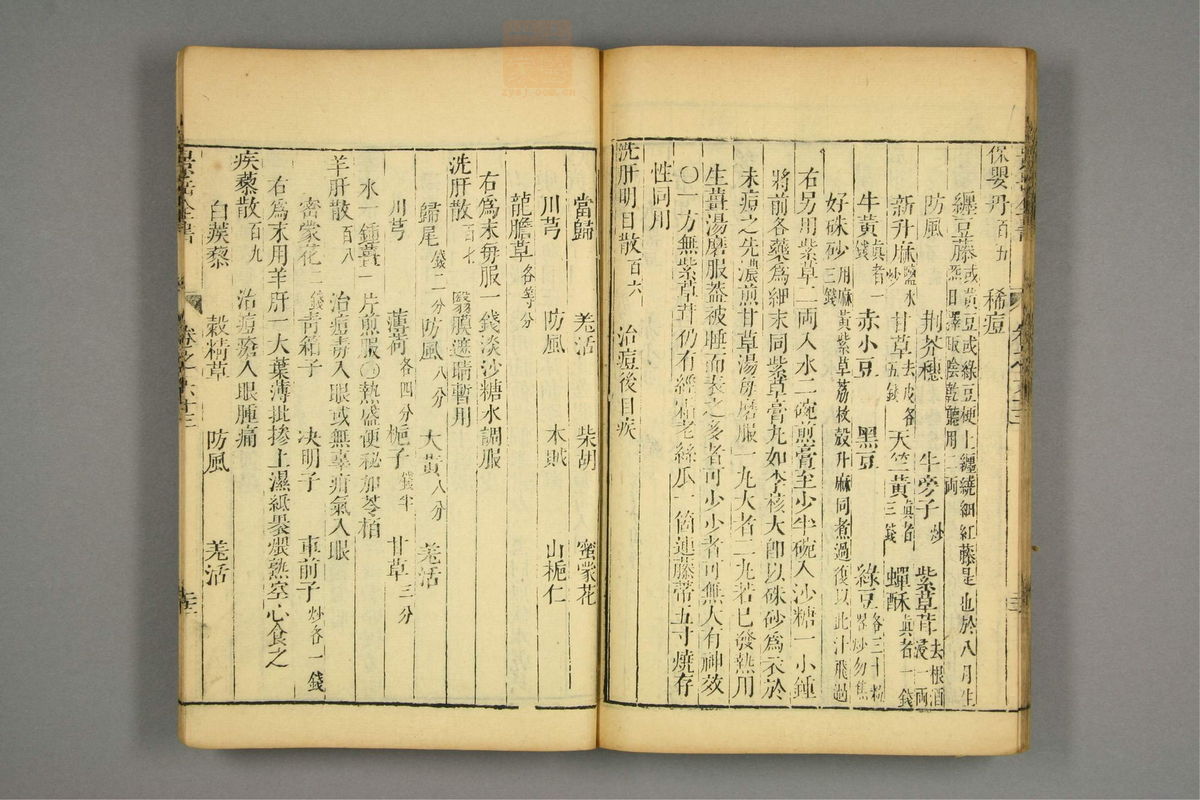 保嬰丹百五 稀痘
纏豆藤或黃豆或綠豆梗上纏繞細紅藤是也於八月生氣日擇取陰乾聽用二兩
防風 荆芥穗 牛旁子炒 紫草茸去根酒浸一兩
新升麻鹽水炒 甘草去皮各五錢 天竺黃真者三錢 蟬酥真者一錢
牛黃真者一錢 赤小豆 黑豆 綠豆各三十粒略炒勿焦
好硃砂三錢用麻黃紫草荔枝殼升麻同煮過復以此汁飛過
右另用紫草二兩入水二碗煎膏至少半碗入沙糖一小鍾
將前各藥為細末同紫草膏丸如李核大卽以硃砂為衣於
未痘之先濃煎甘草湯每磨服一丸大者二丸若已發熱用
生薑湯磨服蓋被睡而表之多者可少少者可無大有神效
〇一方無紫草茸仍有經霜老絲瓜一箇連藤蒂五寸燒存
性同用
洗肝明目散百六 治痘後目疾
當歸 羌活 柴胡 蜜蒙花
川芎 防風 木賊 山梔仁
龍膽草各等分
右為末每服一錢淡沙糖水調服
洗肝散百七 翳膜遮睛暫用
歸尾錢二分 防風八分 大黃八分 羌活
川芎 薄荷各四分 梔子錢半 甘草三分
水一鍾薑一片煎服〇熱盛便秘加芩柏
羊肝散百八 治痘毒入眼或無辜疳氣入眼
密蒙花二錢 青葙子 决明子 車前子炒各一錢
右為末用羊肝一大葉薄批摻上濕紙裹煨熟空心食之
疾藜散百九 治痘瘡入眼腫痛
白蒺藜 穀精草 防風 羌活
景岳全書 卷之六十三